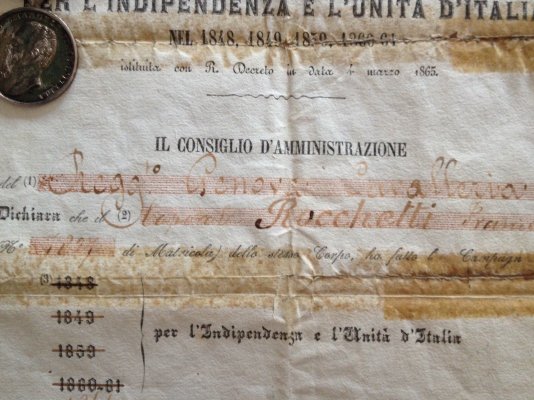 PER L'INDIPENDENZA E L'UNITÀ D'ITALIA
NEL 1848, 1849, 1859, 1860-61
istituita con R. Decreto in data 4 marzo 1865.
IL CONSIGLIO D'AMMINISTRAZIONE
del (1) Regg.to Genova Cavalleria
Dichiara che il (2) Rocchetti
N° di Matricola dello stesso Corpo, ha fatto l Campagn
(3 1848
1849
1859
1860-61
per l'Indipendenza e l'Unità d'Italia